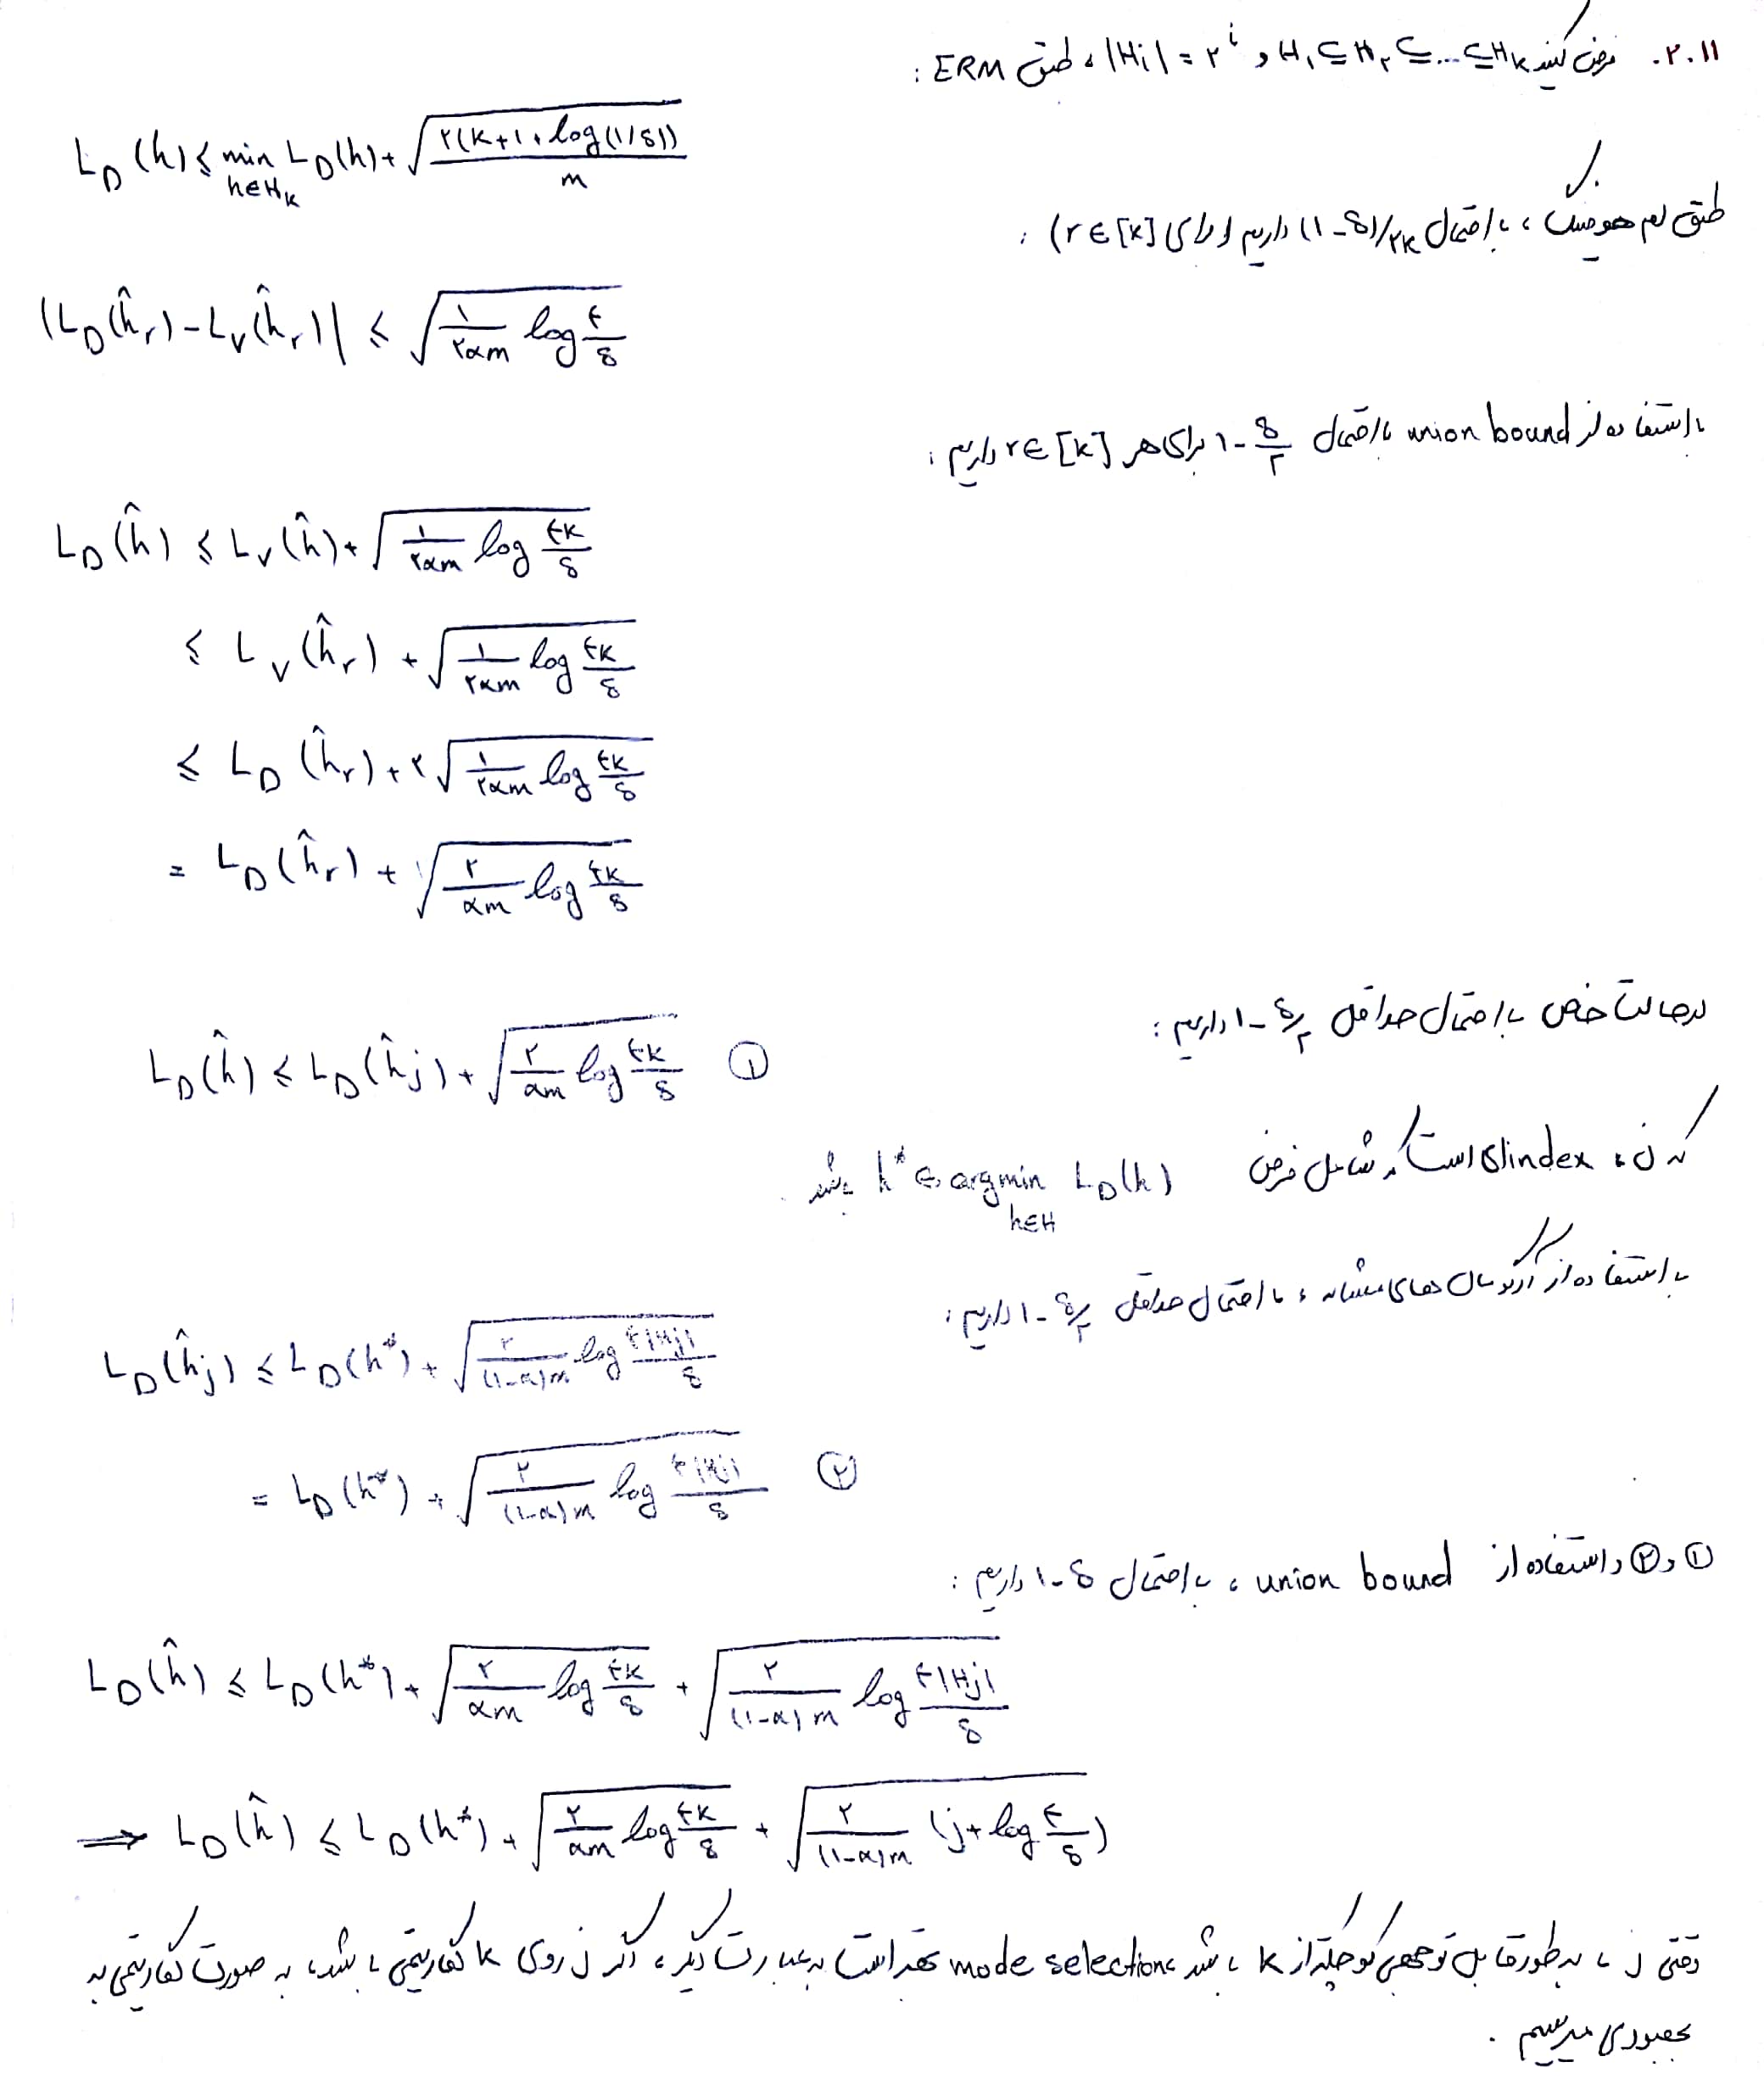 ۲.۱۱. فرض کنید H₁ ⊆ H₂ ⊆ ... ⊆ Hk و |Hi| = ۲^i ، طبق ERM :
L_D(h) ≤ min_{h∈Hk} L_D(h) + √(۲(k+1+log(1/δ)) / m)
طبق لم هوفدینگ ، با احتمال (۱-δ)/۲k داریم (برای r ∈ [k]) :
|L_D(ĥ_r) - L_V(ĥ_r)| ≤ √(۱/۲αm log ۴/δ)
با استفاده از union bound با احتمال ۱ - δ/۲ برای هر r ∈ [k] داریم :
L_D(ĥ) ≤ L_V(ĥ) + √(۱/۲αm log ۴k/δ)
≤ L_V(ĥ_r) + √(۱/۲αm log ۴k/δ)
≤ L_D(ĥ_r) + ۲√(۱/۲αm log ۴k/δ)
= L_D(ĥ_r) + √(۲/αm log ۴k/δ)
در حالت خاص با احتمال حداقل ۱ - δ/۲ داریم :
L_D(ĥ) ≤ L_D(ĥ_j) + √(۲/αm log ۴k/δ) ①
که j ، index ای است که شامل فرض h* ∈ argmin_{h∈H} L_D(h) باشد .
با استفاده از آرگومان های مشابه ، با احتمال حداقل ۱ - δ/۲ داریم :
L_D(ĥ_j) ≤ L_D(h*) + √(۲/(1-α)m log ۴|Hj|/δ)
= L_D(h*) + √(۲/(1-α)m log ۴|Hj|/δ) ②
① و ② و استفاده از union bound ، با احتمال ۱-δ داریم :
L_D(ĥ) ≤ L_D(h*) + √(۲/αm log ۴k/δ) + √(۲/(1-α)m log ۴|Hj|/δ)
⇒ L_D(ĥ) ≤ L_D(h*) + √(۲/αm log ۴k/δ) + √(۲/(1-α)m (j + log ۴/δ))
وقتی j ، به طور قابل توجهی کوچکتر از k باشد ، mode selection بهتر است به عبارت دیگر ، اگر j روی k لگاریتمی باشد ، به صورت لگاریتمی به
بهبودی میرسیم .